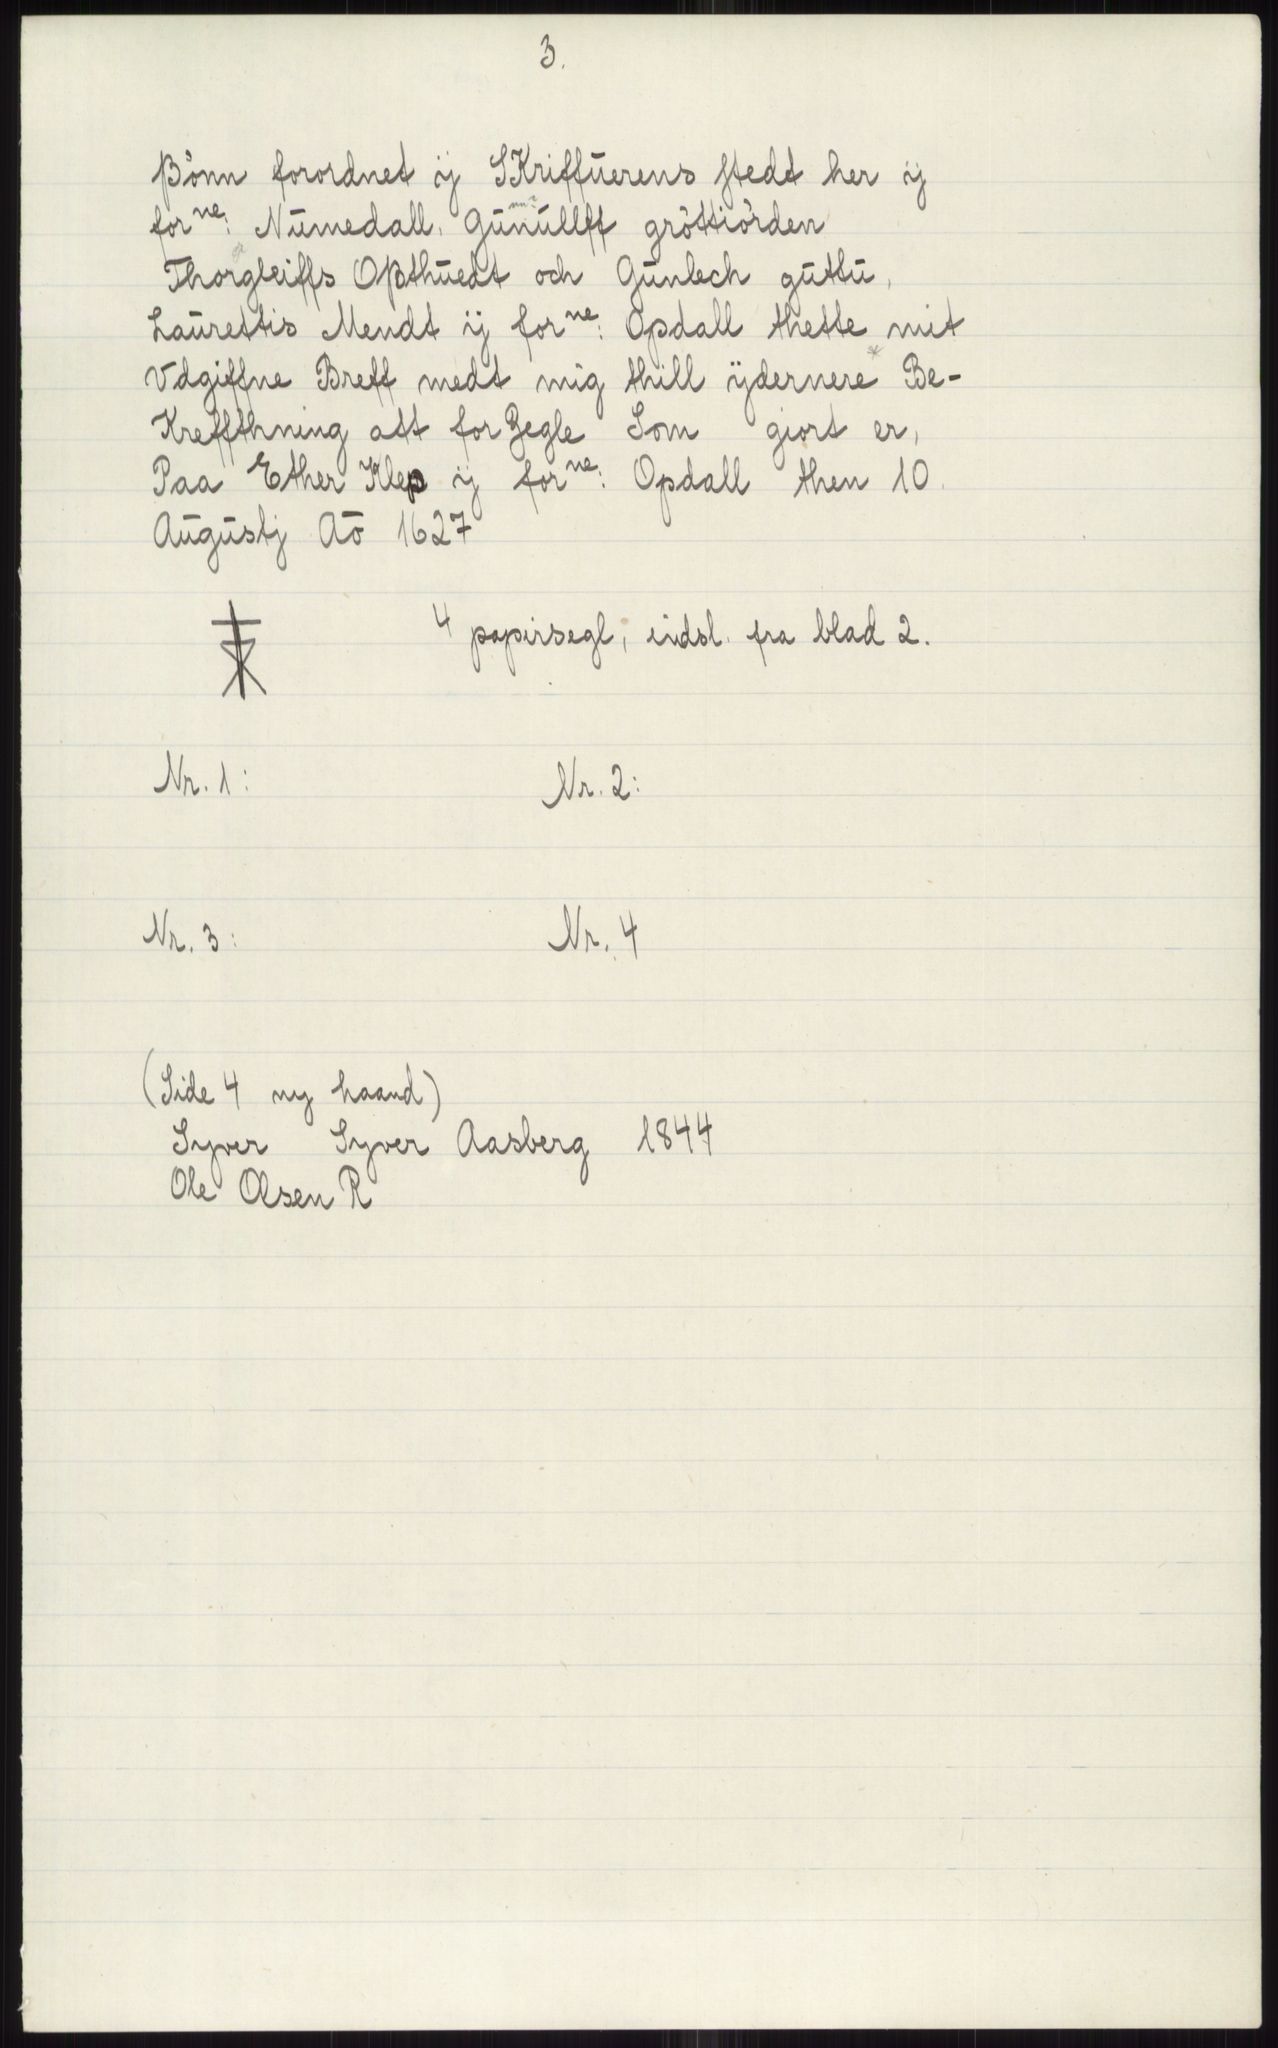 3.
ßönn forordnet ÿ SKriffūerens stedt her ÿ
for ne: Nūmedall, Gūnūllff gröttiörden
Thorgleiffs Opthūedt och Gūnlech gūttū,
Laūrettis Mendt ÿ for ne: Opdall thette mit
Vdgiffne Breff medt mig thill ÿdernere Be-
Kreffthning att for Zegle Som giort er,
Paa Ether Klep ÿ for ne: Opdall then 10.
Aūgūstj Aō 1627
4 papirsegl, eidsl. fra blad 2.
Nr. 1: Nr. 2:
Nr. 3: Nr. 4
(Side 4 ny haand)
Syver Syver Aasberg 1844
Ole Olsen R